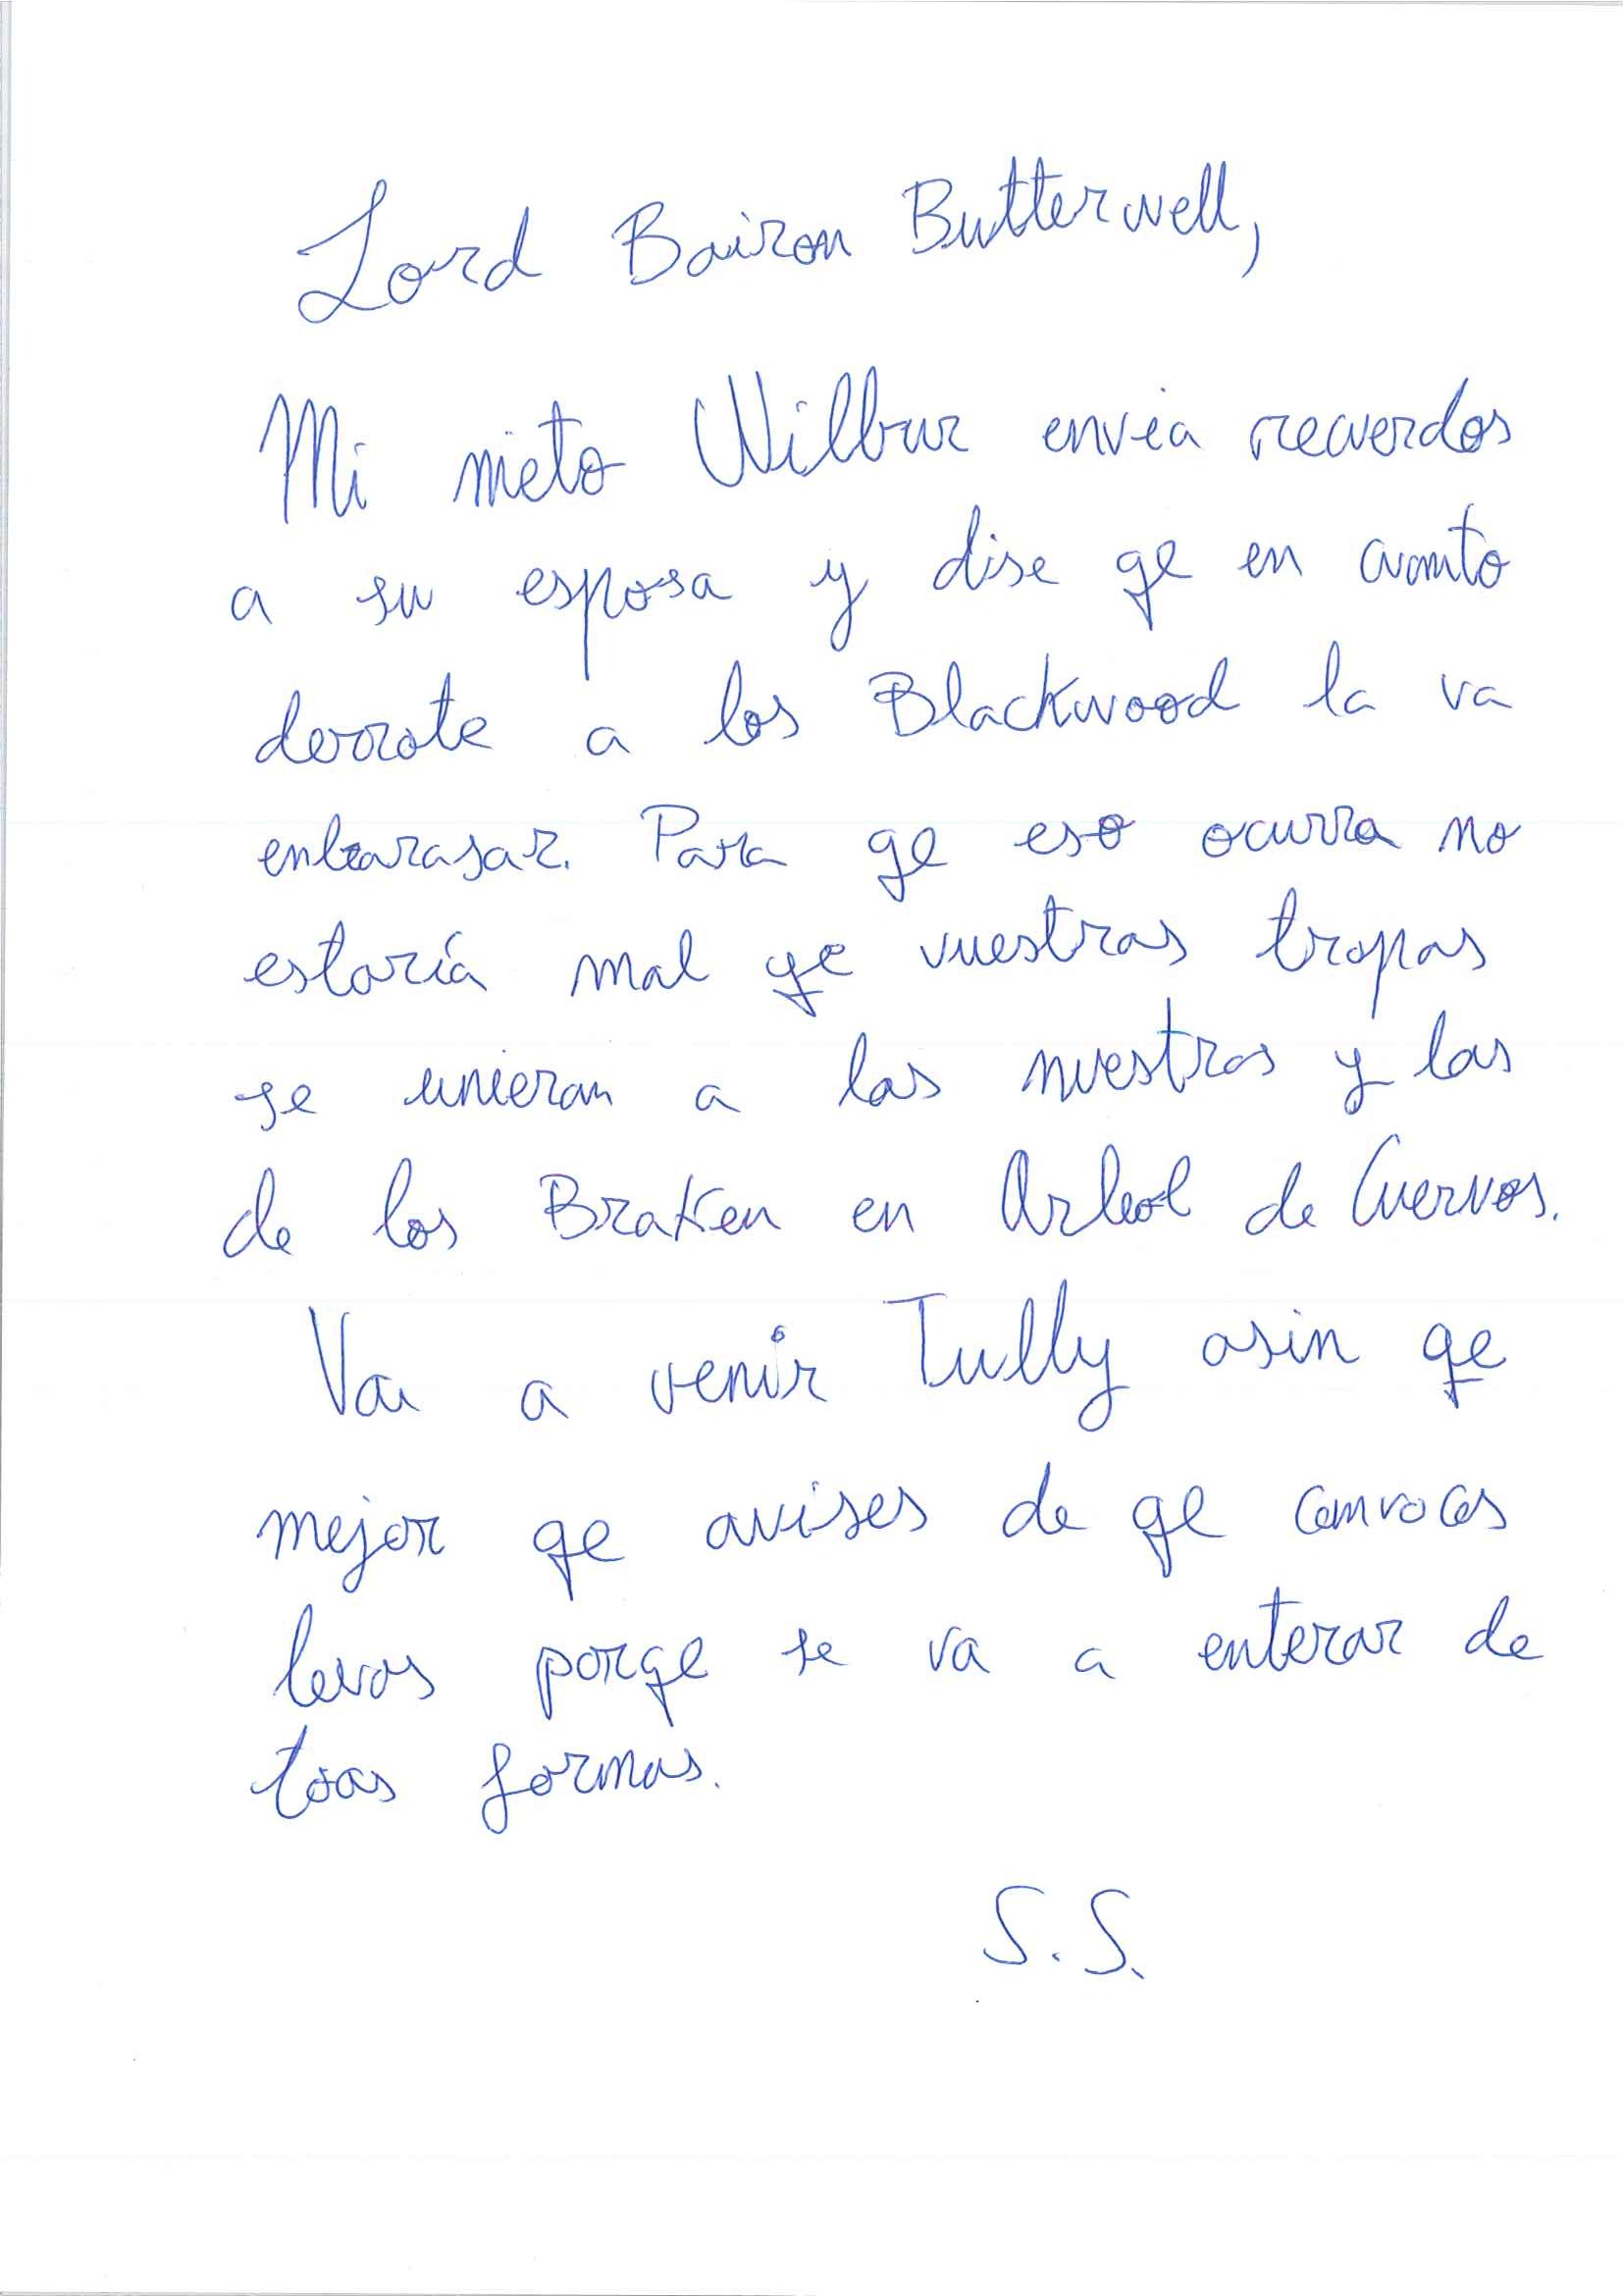 Lord Bairon Butterwell,
Mi nieto Wilbur envia recuerdos
a su esposa y dise qe en cuanto
derrote a los Blackwood la va
enbarasar. Para qe eso ocurra no
estaría mal qe vuestras tropas
se unieran a las nuestras y las
de los Braken en Arbol de Cuervos.
Va a venir Tully asin qe
mejor qe avises de qe convocas
levas porqe se va a enterar de
toas formas.
S.S.